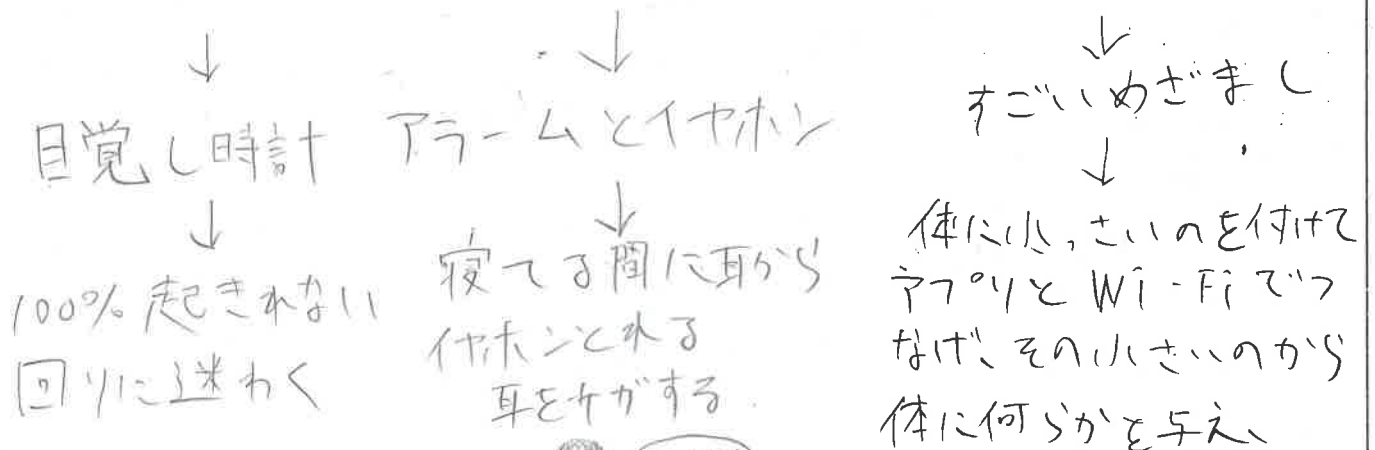 ↓
目覚し時計
↓
100% 起きれない
回りに迷わく
↓
アラームとイヤホン
↓
寝てる間に耳から
イヤホンとれる
耳をケガする
↓
すごいめざまし
↓
体に小っさいのを付けて
アプリと Wi-Fiでつ
なげ、その小さいのから
体に何らかを与え、